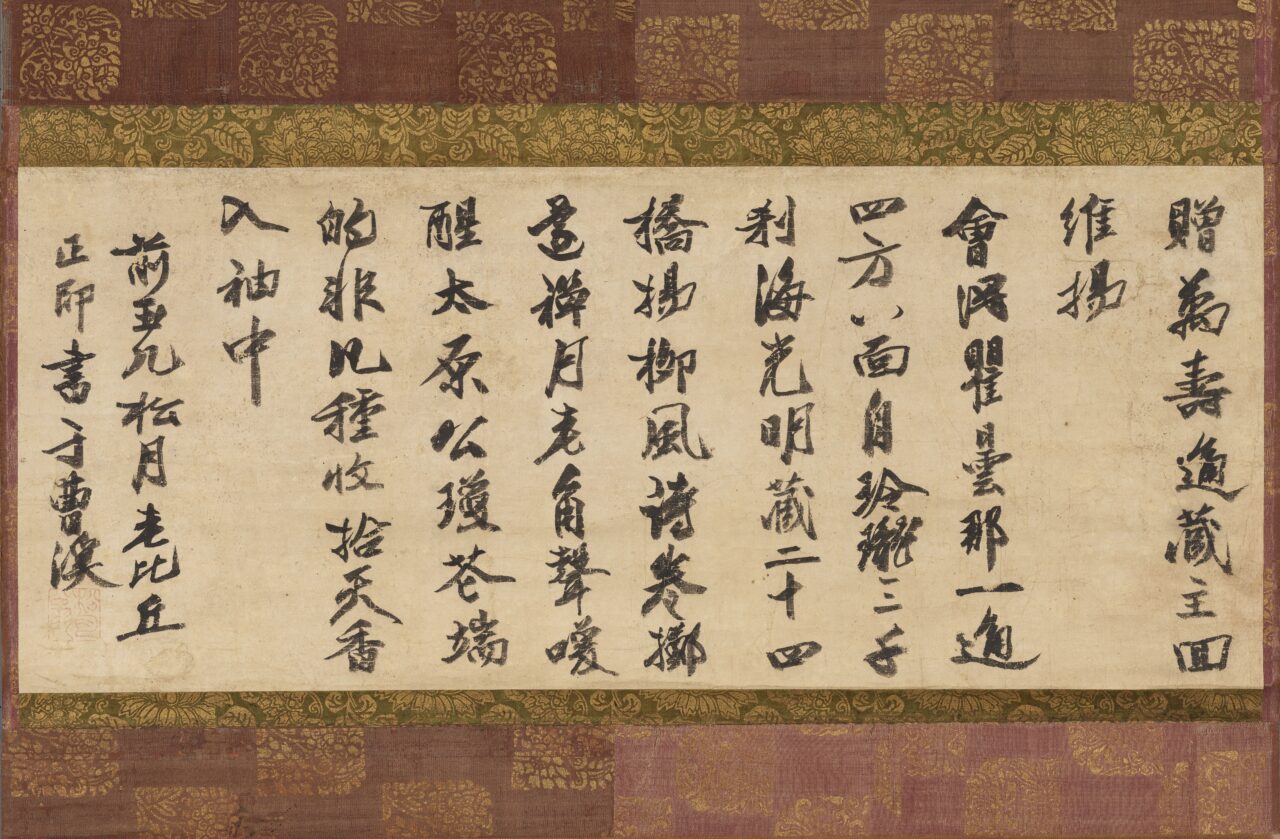 贈萬壽通藏主回
維揚
會得瞿曇那一通
四方八面自玲瓏三千
刹海光明藏二十四
橋楊柳風詩卷擲
還禪月老角聲喚
醒太原公瓊花端
的非凡種收拾天香
入袖中
前玉几松月老比丘
正印書于曹溪